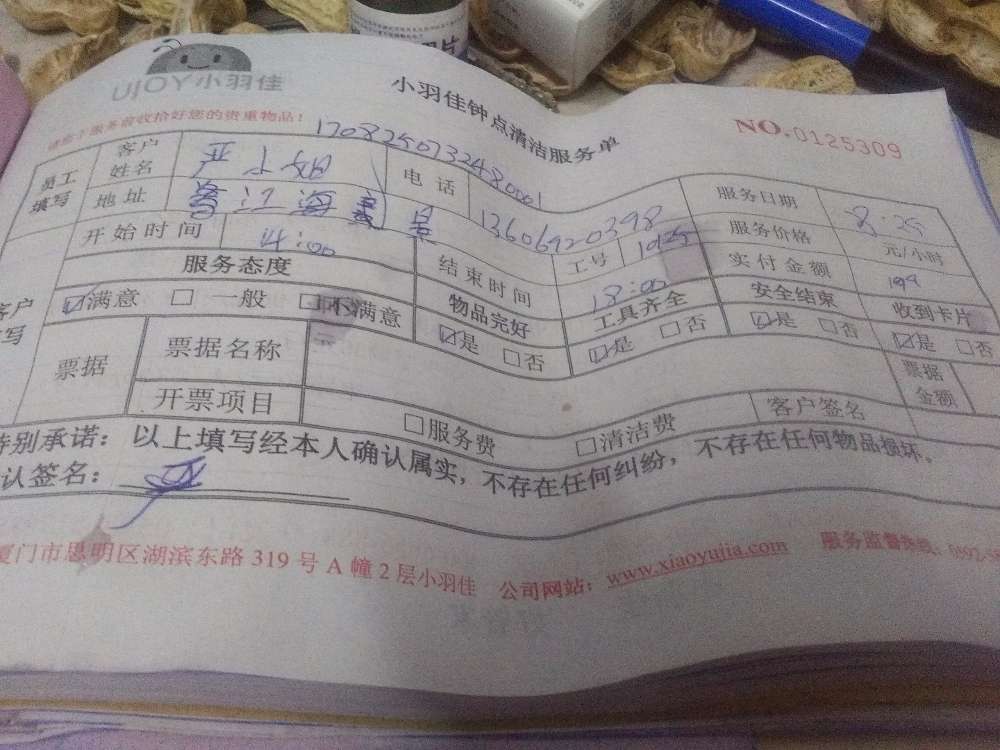 UJOY小羽佳
小羽佳钟点清洁服务单
NO.0125309
服务前收拾好您的贵重物品!
1708250732480001
员工填写 客户姓名 严小姐 电话 13606920398 服务日期 8.25
地址 江海 景 工号 服务价格 元/小时
开始时间 14:00 结束时间 18:00 实付金额
服务态度 物品完好 工具齐全 安全结束 收到卡片
客户 写 ☑满意 □一般 □不满意 ☑是 □否 ☑是 □否 ☑是 □否 ☑是 □否
票据 票据名称 票据金额
开票项目 □服务费 □清洁费 客户签名
特别承诺:以上填写经本人确认属实,不存在任何纠纷,不存在任何物品损坏。
认签名:
厦门市思明区湖滨东路 319 号 A 幢 2 层小羽佳 公司网站:www.xiaoyujia.com 服务监督热线:0592-